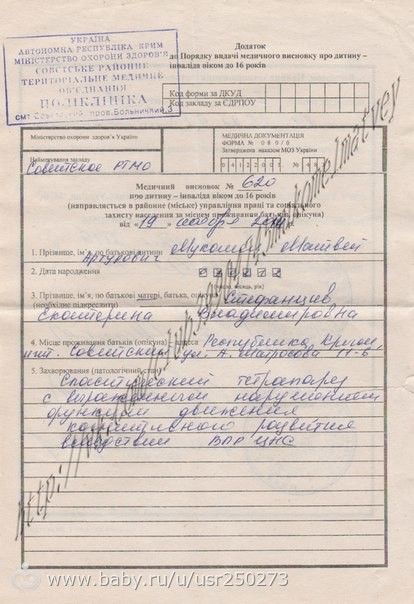 УКРАЇНА
АВТОНОМНА РЕСПУБЛІКА КРИМ
МІНІСТЕРСТВО ОХОРОНИ ЗДОРОВ'Я
СОВЄТСЬКЕ РАЙОННЕ
ТЕРИТОРІАЛЬНЕ МЕДИЧНЕ
ОБ'ЄДНАННЯ
ПОЛІКЛІНІКА
смт Совєтський, пров.Больничний
Додаток
до Порядку видачі медичного висновку про дитину –
інваліда віком до 16 років
Код форми за ДКУД
Код закладу за ЄДРПОУ
Міністерство охорони здоров'я України
Найменування закладу
Советское РТМО
МЕДИЧНА ДОКУМЕНТАЦІЯ
ФОРМА № 080/о
Затверджена наказом МОЗ України
Медичний висновок № 620
про дитину – інваліда віком до 16 років
(направляється в районне (міське) управління праці та соціального
захисту населення за місцем проживання батьків, опікуна)
від «19» ноября
1. Прізвище, ім'я, по батькові дитини Матвей
Артурович
2. Дата народження
(число, місяць, рік)
3. Прізвище, ім'я, по батькові матері, батька, опікуна
(необхідне підкреслити)
Екатерина Владимировна
4. Місце проживання батьків (опікуна) Республика Крым,
пгт. Советский ул. А. Матросова 11-6
5. Захворювання (патологічний
Спастический тетрапарез
с выраженным нарушением
функции движения
развития
вследствии ВПР ЦНС
www.baby.ru/u/usr250273